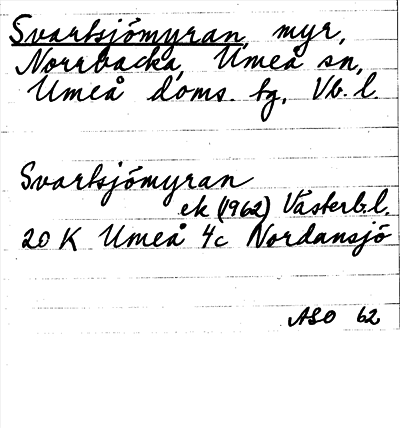 Svartsjömyran, myr,
Norrbacka, Umeå sn,
Umeå doms. tg, Vb. l.
Svartsjömyran
ek (1962) Västerb. l.
20 K Umeå 4c Nordansjö
ASO 62